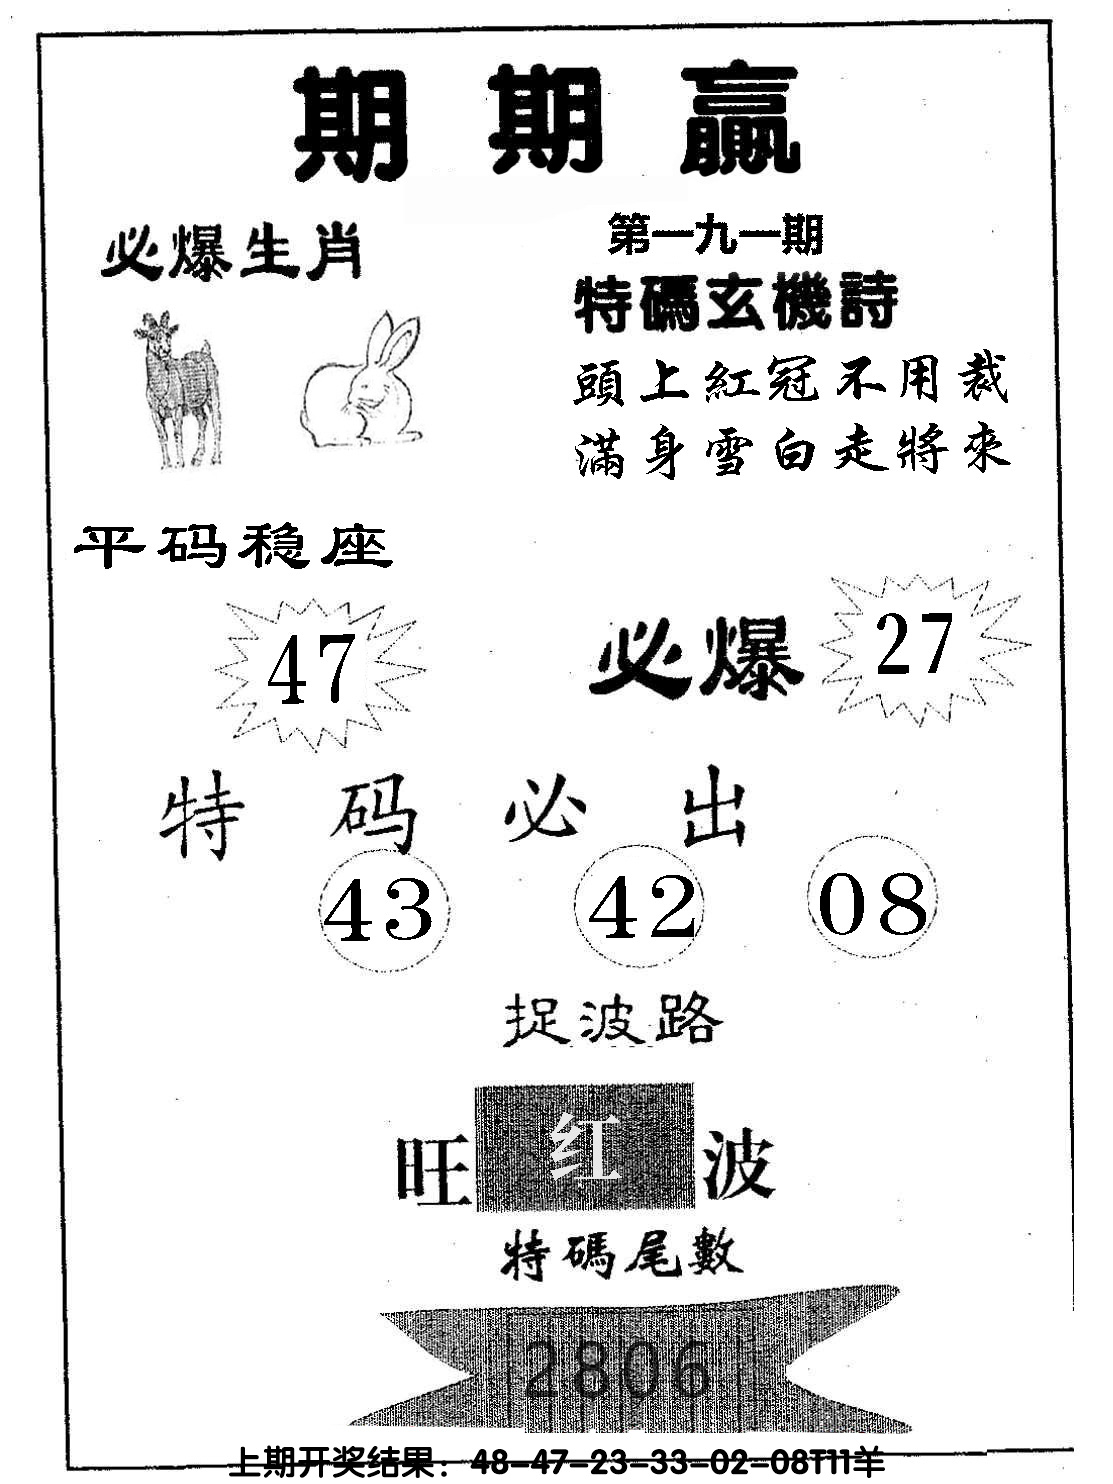 期期贏
必爆生肖
第一九一期
特碼玄機詩
頭上紅冠不用裁
滿身雪白走將來
平码稳座
47
必爆
27
特码必出
43 42 08
捉波路
旺红波
特碼尾數
2806
上期开奖结果：48-47-23-33-02-08T11羊